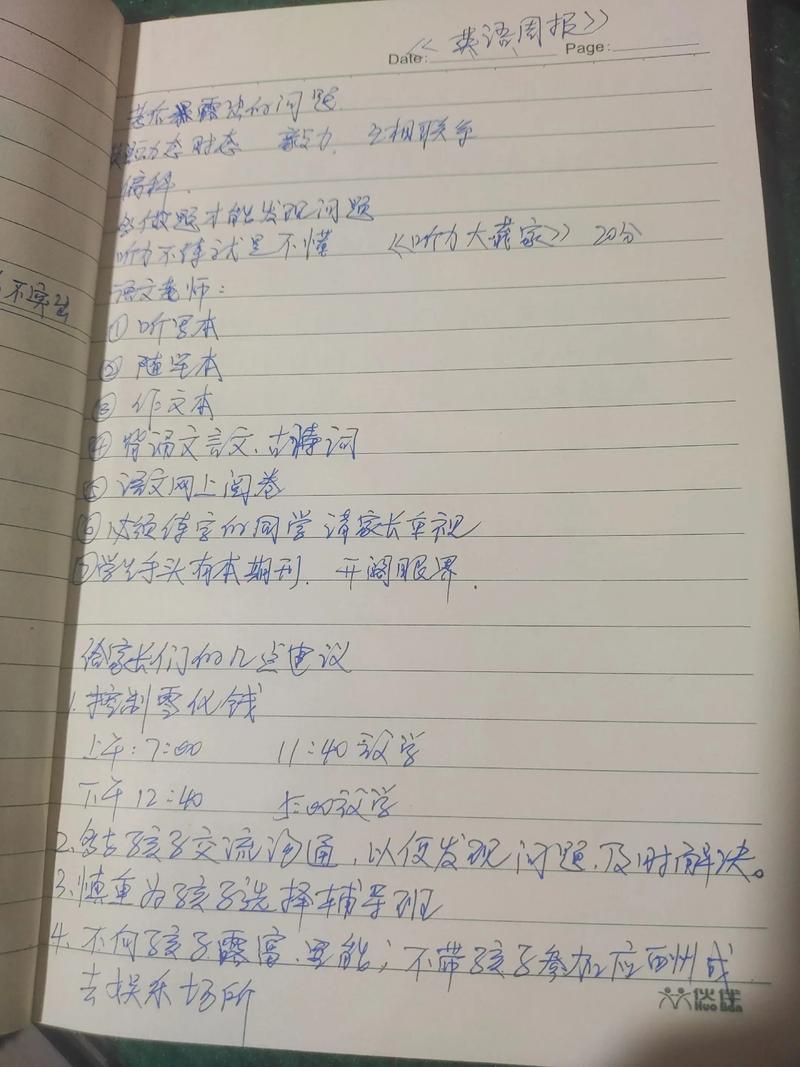 《英语周报》
Date: Page:
考后暴露出的问题
态 时态 毅力 互相联系
偏科.
多做题才能发现问题
听力不 就是不懂 《听力大赢家》 20分
不突出
语文老师:
① 听写本
② 随笔本
③ 作文本
④ 背诵文言文、古诗词
⑤ 语文网上阅卷
⑥ 必须练字的同学请家长重视
⑦ 学生手头有本期刊. 开阔眼界.
给家长们的几点建议
1. 控制零化钱
上午:7:00 11:40放学
下午12:40 5:00放学
2. 多与孩子交流沟通,以便发现问题,及时解决。
3. 慎重为孩子选择辅导班
4. 不向孩子露富、逞能;不带孩子参加应酬或
去娱乐场所
伙伴
Huo Ban